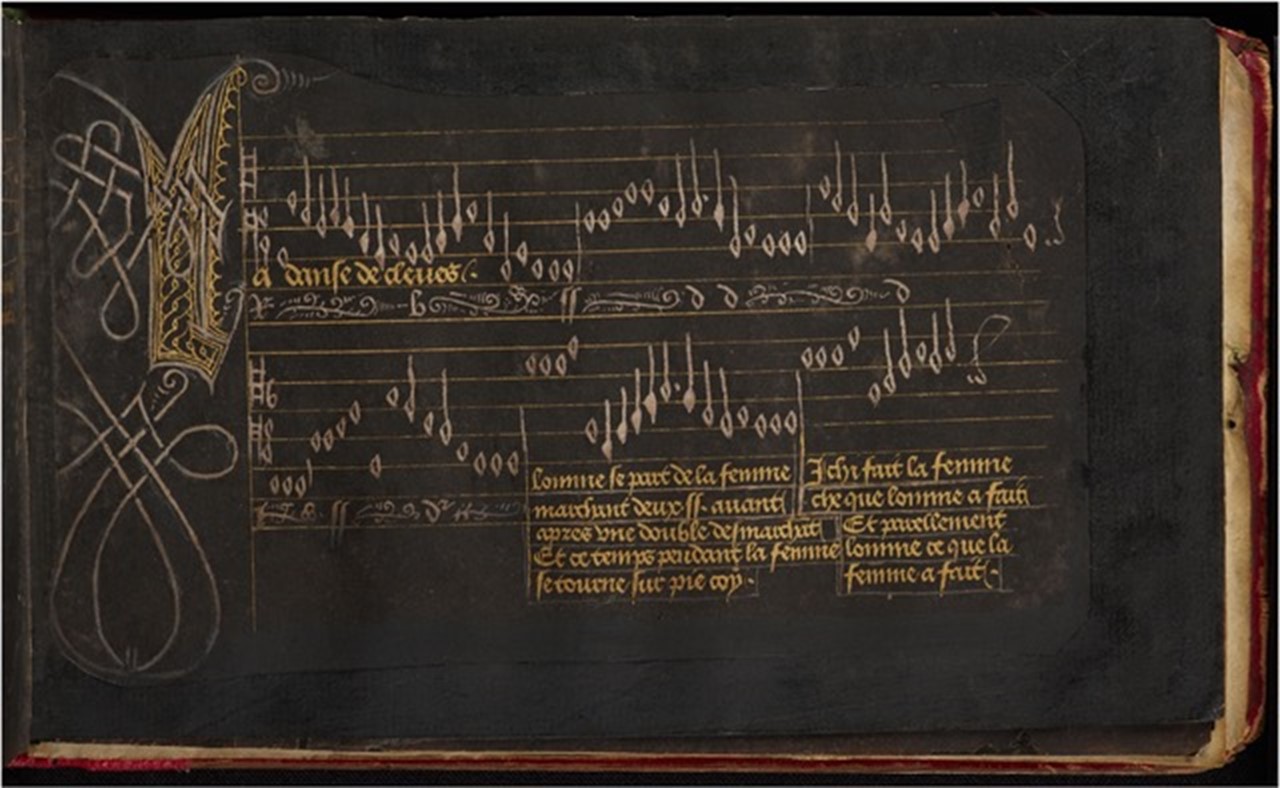 La danse de cleves
lomme se part de la femme
marchant deux ss. avant
apres vne double desmarchāt
Et ce temps pendant la femme
se tourne sur pie coy.
Ichi fait la femme
che que lomme a fait
Et parellement
lomme ce que la
femme a fait